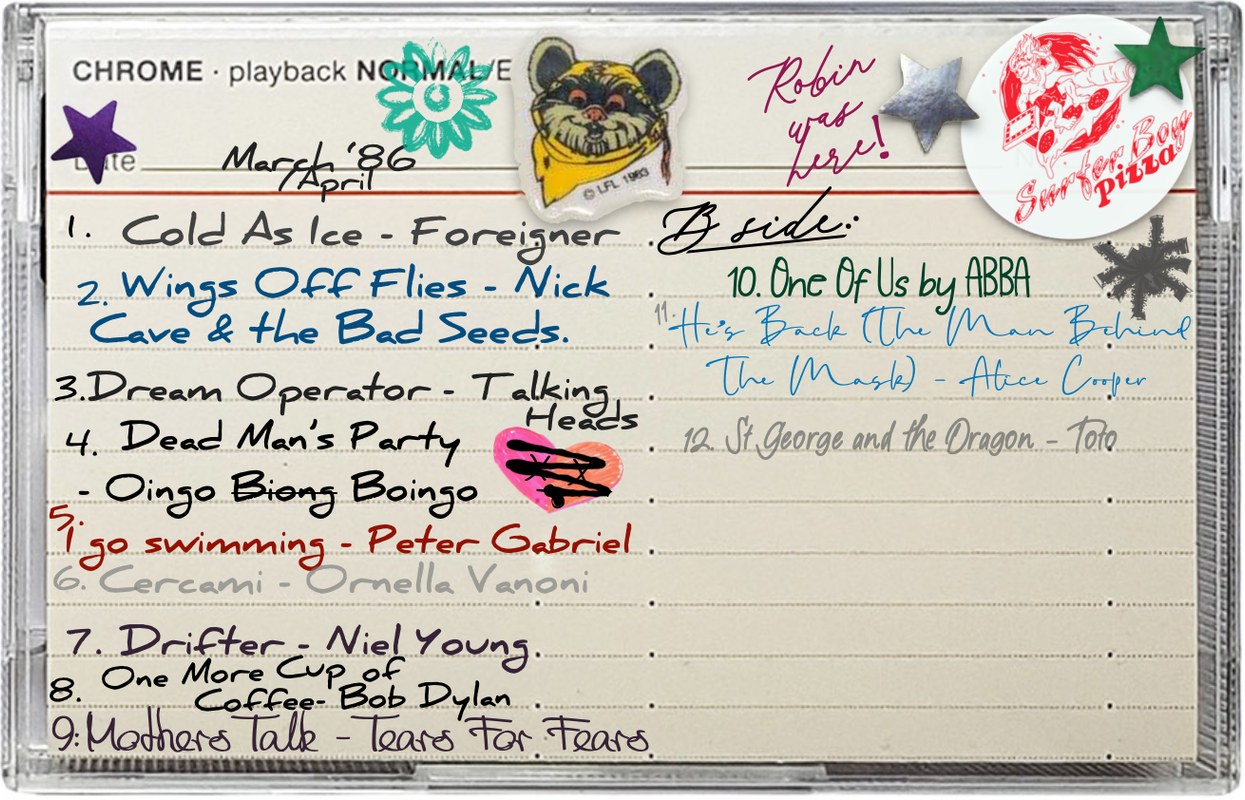 CHROME · playback NORMAL/E
Date
March '86
/April
© LFL 1983
Robin
was
here!
Surfer Boy
Pizza
1. Cold As Ice - Foreigner
2. Wings Off Flies - Nick
Cave & the Bad Seeds.
3. Dream Operator - Talking
Heads
4. Dead Man's Party
- Oingo Biong Boingo
5. I go swimming - Peter Gabriel
6. Cercami - Ornella Vanoni
7. Drifter - Niel Young
8. One More Cup of
Coffee- Bob Dylan
9: Mothers Talk - Tears For Fears
B side:
10. One Of Us by ABBA
11. He's Back (The Man Behind
The Mask) - Alice Cooper
12. St George and the Dragon - Toto